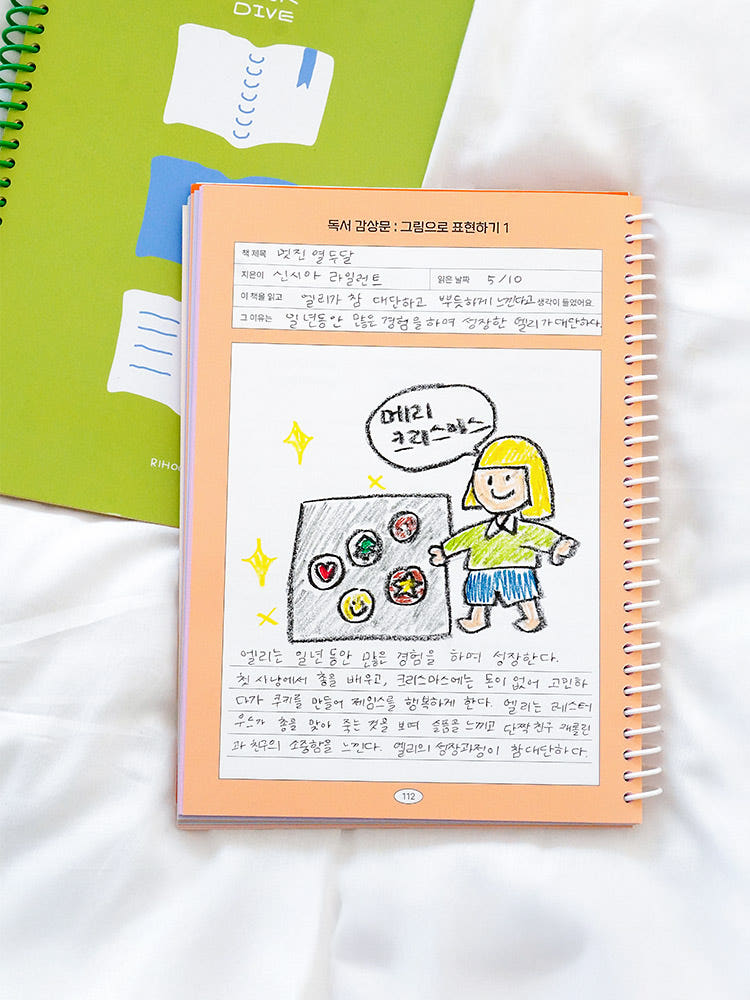 DIVE
독서 감상문 : 그림으로 표현하기 1
책 제목 멋진 열두달
지은이 신시아 라일런트 읽은 날짜 5/10
이 책을 읽고 엘리가 참 대단하고 뿌듯하게 느낀다고 생각이 들었어요.
그 이유는 일년동안 많은 경험을 하며 성장한 엘리가 대단하다.
메리
크리스마스
엘리는 일년동안 많은 경험을 하며 성장한다.
첫 사냥에서 총을 배우고, 크리스마스에는 돈이 없어 고민하
다가 쿠키를 만들어 제임스를 행복하게 한다. 엘리는 레스터
우스가 총을 맞아 죽는 것을 보며 슬픔을 느끼고 단짝 친구 캐롤린
과 친구의 소중함을 느낀다. 엘리의 성장과정이 참 대단하다.
112